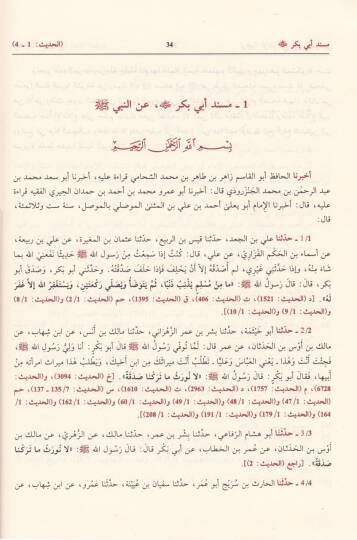 مسند أبي بكر ﷺ 34 (الحديث: 1 ـ 4)
1 ـ مسند أبي بكر ﷺ، عن النبي ﷺ
بسم الله الرحمن الرحيم
أخبرنا الحافظ أبو القاسم زاهر بن طاهر بن محمد الشحامي قراءة عليه، أخبرنا أبو سعد محمد بن
عبد الرحمٰن بن محمد الجَنْزَروذي قال: أخبرنا أبو عمرو محمد بن أحمد بن حمدان الجيري الفقيه قراءة
عليه، قال: أخبرنا الإمام أبو يعلى أحمد بن علي بن المثنى الموصلي بالموصل، سنة ست وثلاثمئة،
قال:
1/1 ـ حدّثنا علي بن الجعد، حدّثنا قيس بن الربيع، حدّثنا عثمان بن المغيرة، عن علي بن ربيعة،
عن أسماء بن الحكم الفَزَاريّ، عن علي، قال: كُنْتُ إذا سَمِعْتُ مِنْ رسول الله ﷺ حَدِيثًا نَفَعني الله بما
شاءَ مِنْهُ، وإذا حَدَّثني غَيْرِي، لم أُصَدِّقْهُ إلاَّ أنْ يَحْلِفَ فإذا حَلَفَ صَدَّقْتُهُ. وحَدَّثني أبو بكر، وَصَدَقَ أبو
بكر، قالَ: قالَ رَسولُ الله ﷺ: «ما مِنْ مُسْلِمٍ يُذْنِبُ ذَنْبًا، ثُمَّ يَتَوَضَّأُ ويُصَلِّي رَكْعَتَيْنِ، وَيَسْتَغْفِرُ الله إلاَّ غَفَرَ
لَهُ». [د (الحديث: 1521)، ت (الحديث: 406)، ق (الحديث: 1395)، حم (الحديث: 2/1) و(الحديث: 8/1)
و(الحديث: 9/1) و(الحديث: 10/1)].
2/2 ـ حدّثنا أبو خَيْثَمَة، حدّثنا بشر بن عمر الزَّهْرَانيّ، حدّثنا مالك بن أنس، عن ابن شِهاب، عن
مالك بن أوس بن الحَدَثَان، عن عمر قال: لمَّا تُوفِّيَ رسولُ الله ﷺ قال أبو بَكْر: أنا وَلِيُّ رَسُولِ الله ﷺ
فجِئْتَ أنْتَ وَهٰذا، يَعْني العَبَّاسَ وَعَلِيًّا، تَطْلُبُ أنْتَ مِيرَاثَكَ مِن ابن أخيكَ، وَيَطْلُبُ هٰذا مِيراثَ امرأتِهِ مِنْ
أبيها، فَقَالَ أبو بَكْر: قالَ رَسُولُ الله ﷺ: «لا نُورَثُ ما تَرَكْنَا صَدَقَةٌ». [خ (الحديث: 3094)، و(الحديث:
6728)، م (الحديث: 1757)، د (الحديث: 2963)، ت (الحديث: 1610)، س (الحديث: 135/7 ـ 137)، حم
(الحديث: 47/1) و(الحديث: 48/1) و(الحديث: 49/1) و(الحديث: 60/1) و(الحديث: 162/1) و(الحديث:
164) و(الحديث: 179/1) و(الحديث: 191/1) و(الحديث: 208/1)].
3/3 ـ حدّثنا أبو هشام الرّفاعي، حدّثنا بشر بن عمر، حدّثنا مالك، عن الزُّهْرِيّ، عن مالك بن
أَوْس بن الحَدَثان، عن عمر بن الخطاب، عن أبي بكر قالَ: قَالَ رسول الله ﷺ: «لا نُورَثُ ما تَرَكْنا
صَدَقَةٌ». [راجع (الحديث: 2)].
4/4 ـ حدّثنا الحارث بن سُرَيْج أبو عُمَر، حدّثنا سفيان بن عُيَيْنَة، حدّثنا عَمْرو، عن ابن شهاب، عن